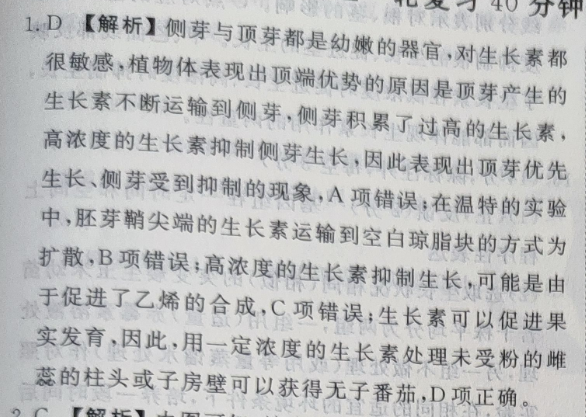 轮复习 40 分钟
1. D 【解析】侧芽与顶芽都是幼嫩的器官,对生长素都
很敏感,植物体表现出顶端优势的原因是顶芽产生的
生长素不断运输到侧芽,侧芽积累了过高的生长素,
高浓度的生长素抑制侧芽生长,因此表现出顶芽优先
生长、侧芽受到抑制的现象,A 项错误;在温特的实验
中,胚芽鞘尖端的生长素运输到空白琼脂块的方式为
扩散,B 项错误;高浓度的生长素抑制生长,可能是由
于促进了乙烯的合成,C 项错误;生长素可以促进果
实发育,因此,用一定浓度的生长素处理未受粉的雌
蕊的柱头或子房壁可以获得无子番茄,D 项正确。
2. C 【解析】由图可